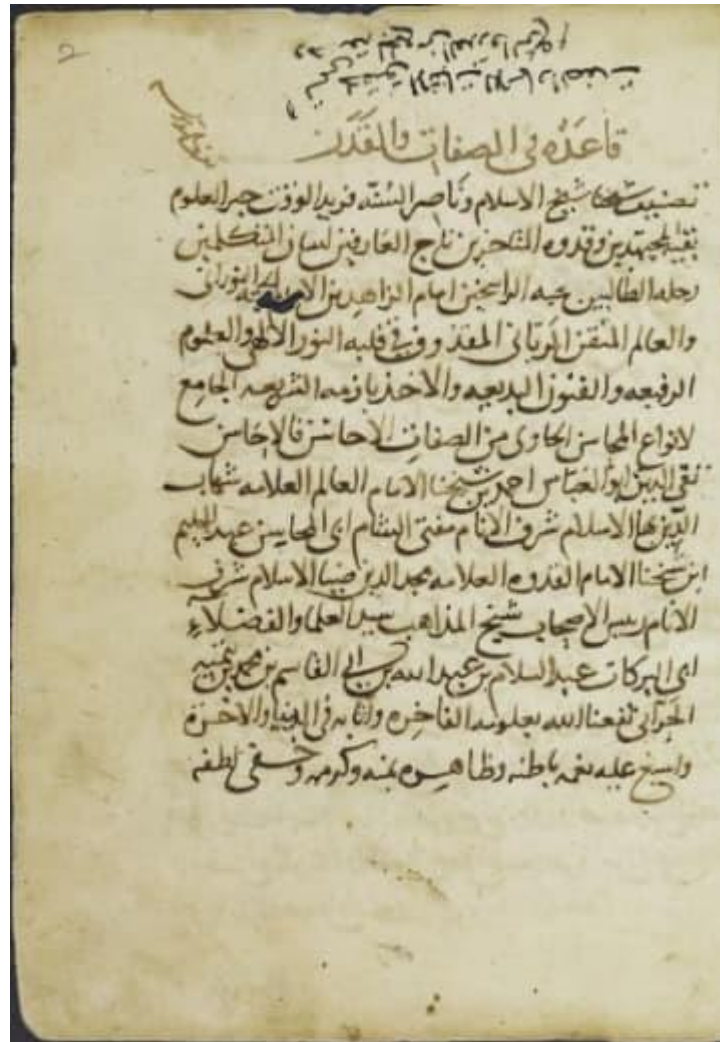 2
قاعده فى الصفات والقدر
تصنيف شيخنا شيخ الاسلام وناصر السنه فريد الوقت بحر العلوم
بقيه المجتهدين وقدوه المتاخرين تاج العارفين لسان المتكلمين
رحله الطالبين الراسخين امام الزاهدين النورانى
والعالم المتقن الربانى المقذوف فى قلبه النور الالهى والعلوم
الرفيعه والفنون البديعه والاخذ بازمه الشريعه الجامع
لانواع المحاسن الحاوى من الصفات الاحاسن فالاحاسن
تقى الدين ابو العباس احمد بن شيخنا الامام العالم العلامه شهاب
الدين بها الاسلام شرف الانام مفتى الشام ابى المحاسن عبد الحليم
ابن شيخنا الامام القدوه العلامه مجد الدين ضيا الاسلام شرف
الانام رييس الاصحاب شيخ المذاهب سيد العلما والفضلاء
ابى البركات عبد السلام بن عبد الله بن ابى القاسم بن محمد بن تيميه
الحرانى نفعنا الله بعلومه الفاخره واثابه فى الدنيا والاخره
واسبغ عليه نعمه باطنه وظاهره بمنه وكرمه وخفى لطفه